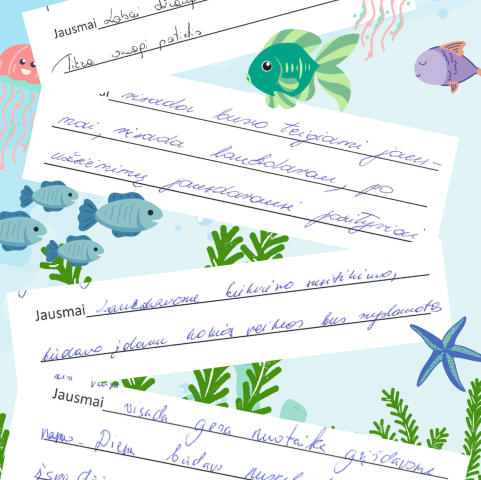 Jausmai Labai
Tikra smagi patirtis
visada buvo teigiami jaus-
mai, visada laukdavau, po
užsiėmimų jausdavausi pozityviai
Jausmai Laukdavome kiekvieno susitikimo,
būdavo įdomu kokios veiklos bus suplanuotos
Jausmai visada gera nuotaika grįždavome
namo. Diena būdavo